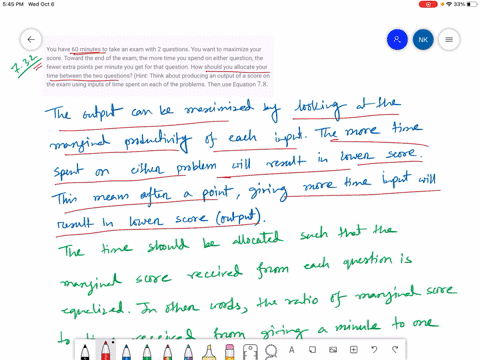 5:45 PM Wed Oct 6
33%
NK
7.32
You have 60 minutes to take an exam with 2 questions. You want to maximize your
score. Toward the end of the exam, the more time you spend on either question, the
fewer extra points per minute you get for that question. How should you allocate your
time between the two questions? (Hint: Think about producing an output of a score on
the exam using inputs of time spent on each of the problems. Then use Equation 7.8.
The output can be maximised by looking at the
marginal productivity of each input. The more time
spent on either problem will result in lower score.
This means after a point, giving more time input will
result in lower score (output).
The time should be allocated such that the
marginal score received from each question is
equalized. In other words, the ratio of marginal score
received from giving a minute to one